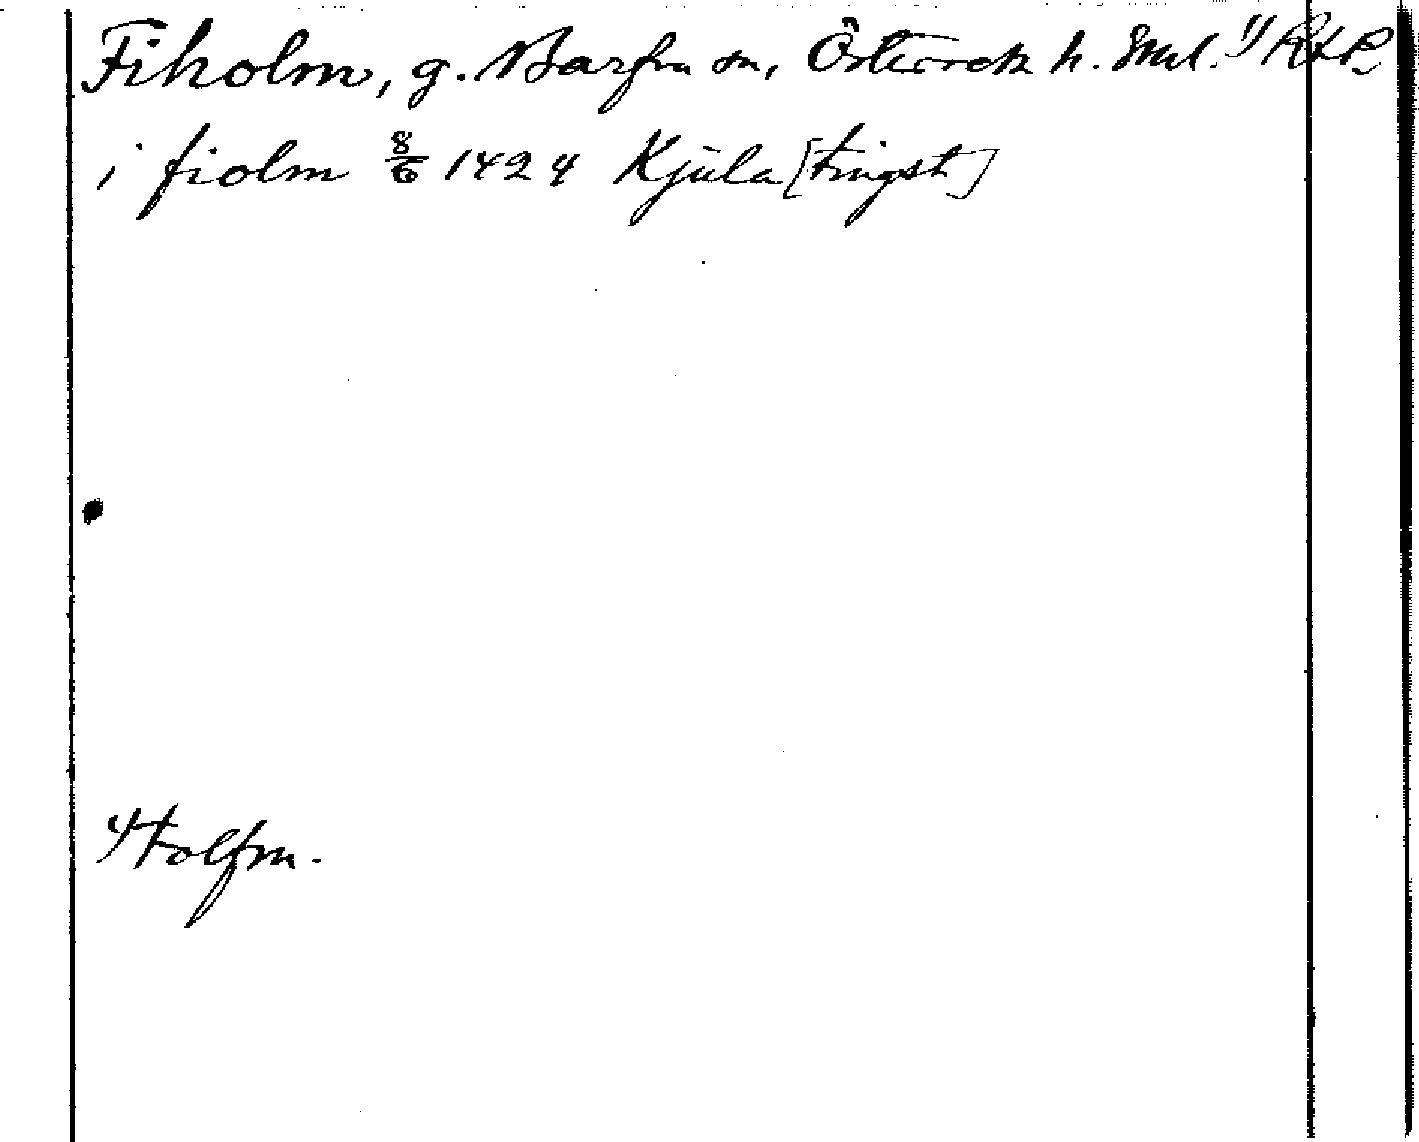 Fiholm, g. Barfva sn, Österrek h. Sml. 1) RAP
i fiolm 8/6 1424 Kjula [tingst]
1) tolfm.